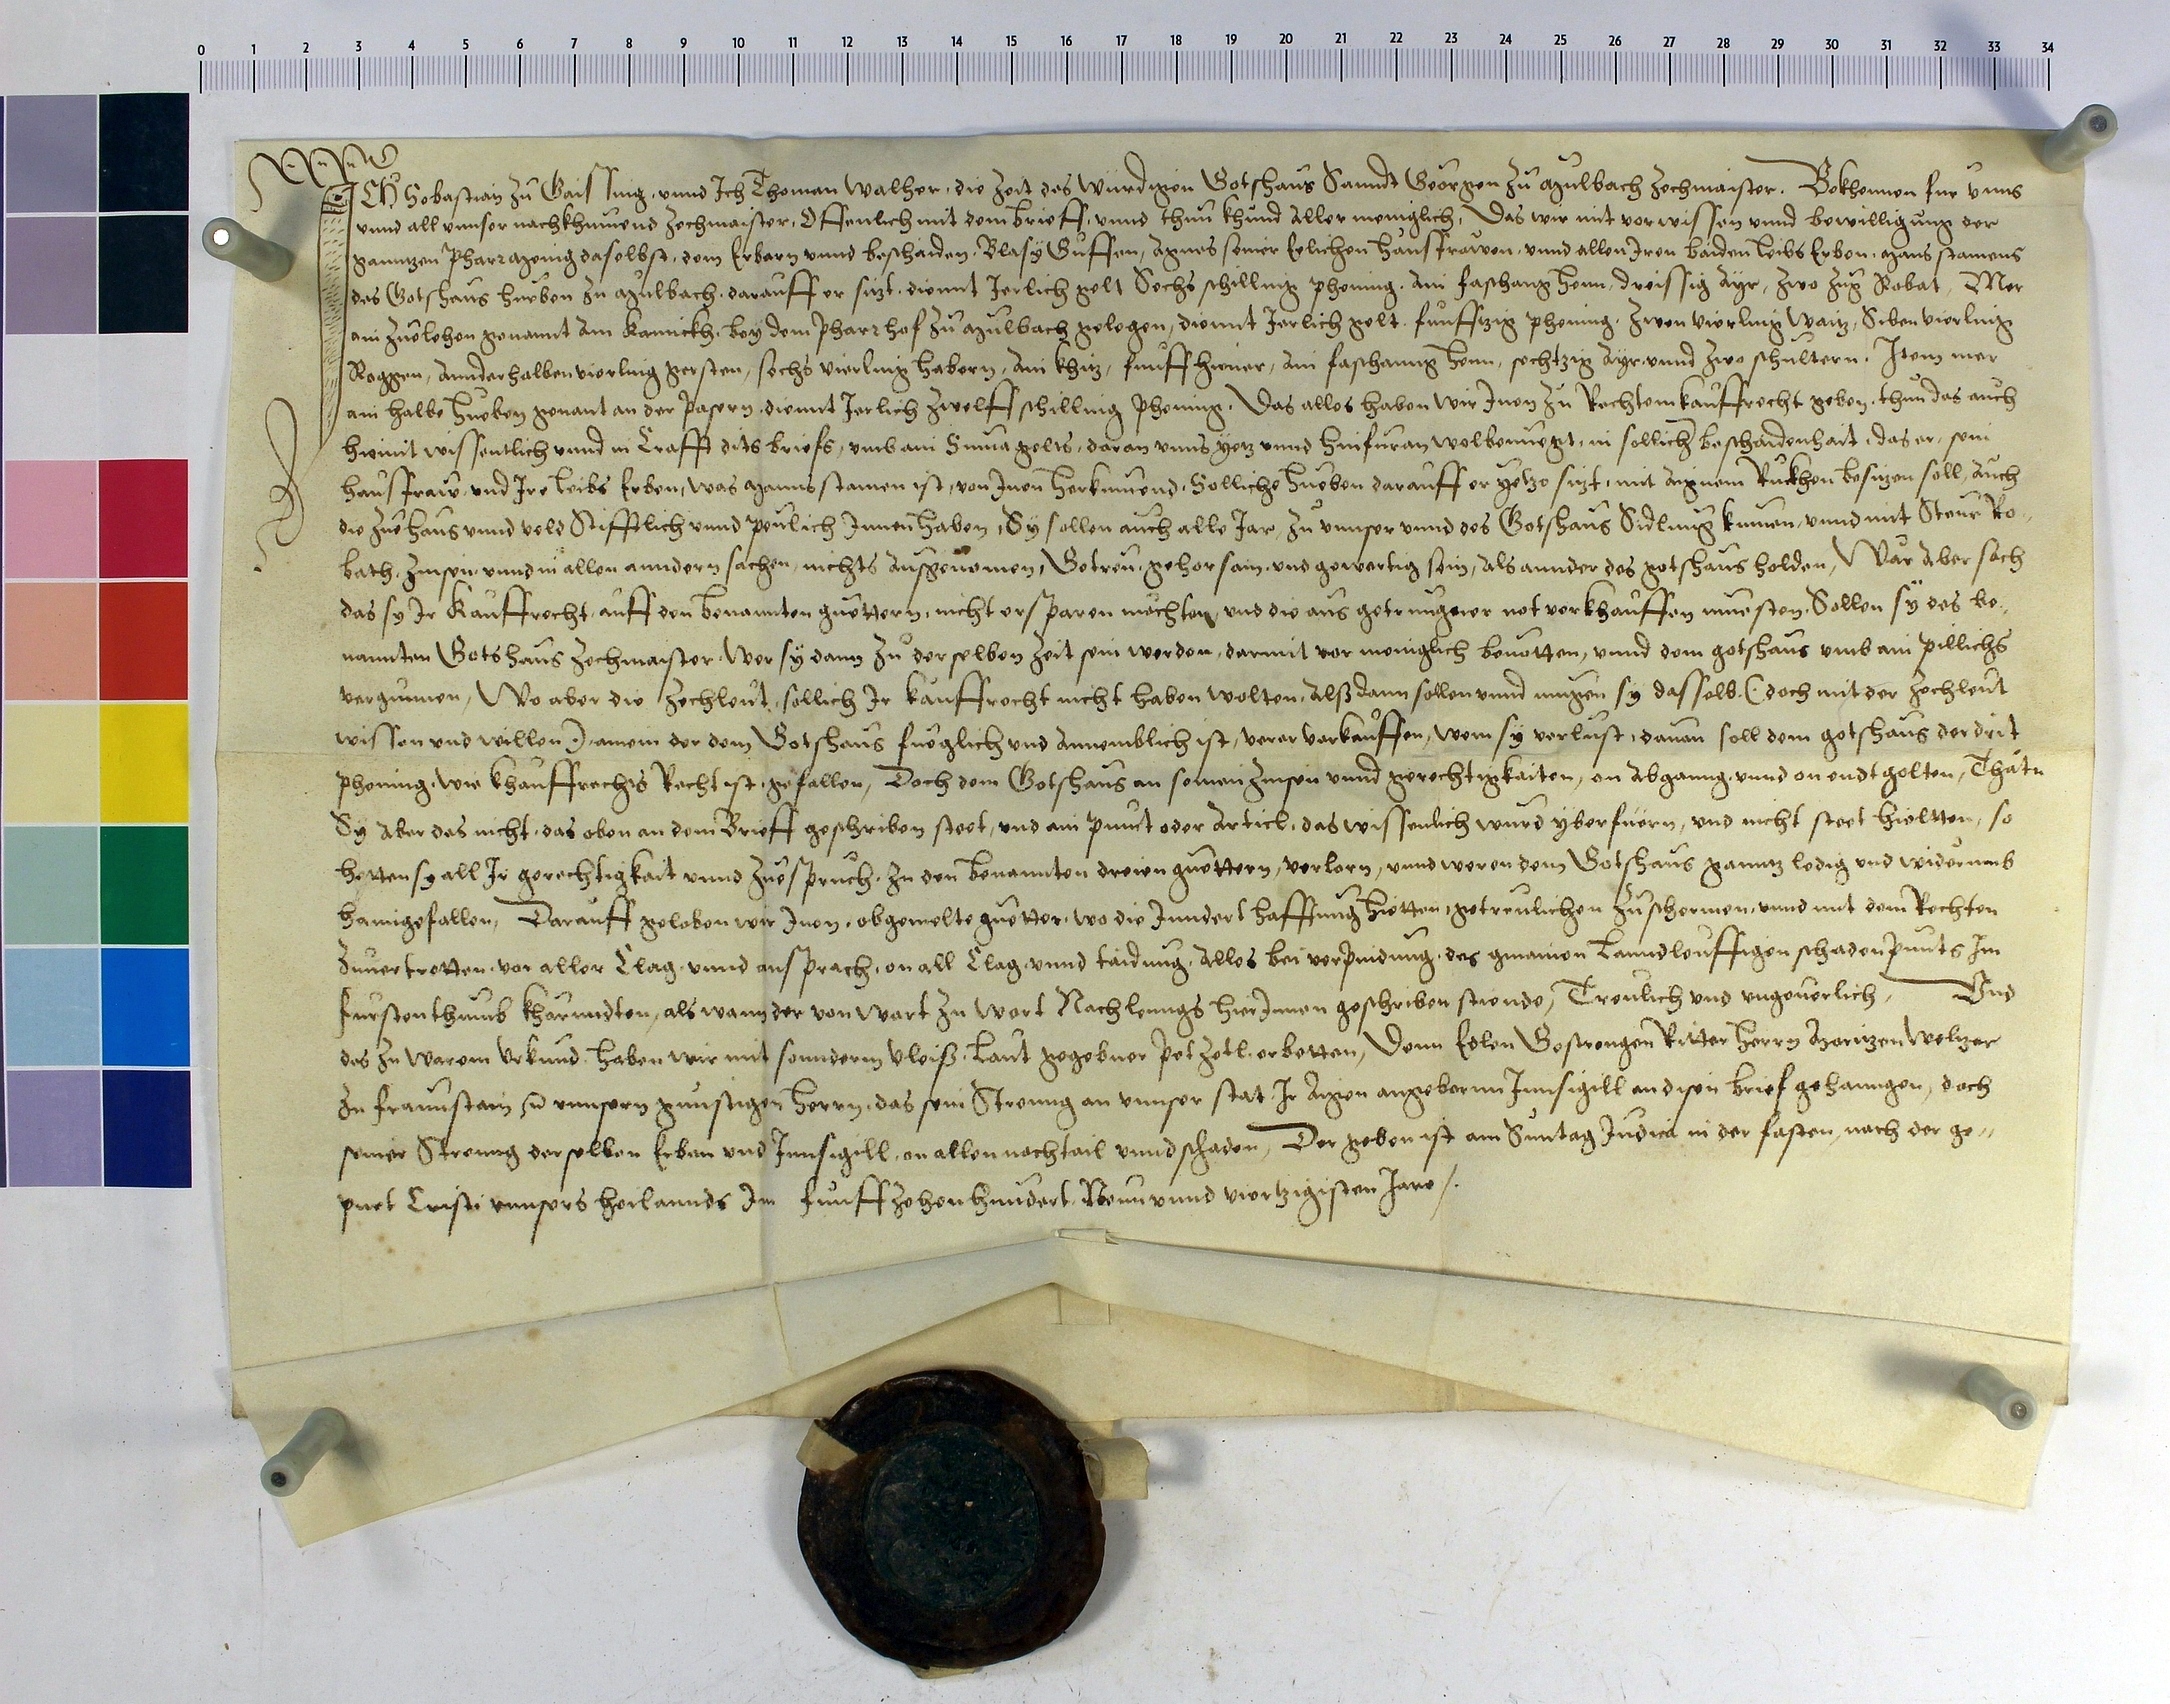 0 1 2 3 4 5 6 7 8 9 10 11 12 13 14 15 16 17 18 19 20 21 22 23 24 25 26 27 28 29 30 31 32 33 34
ICh Sebastian zu Gaissing, unnd Ich Thoman Walher, die zeit des wurdigen Gotshaus Sannd Georgen zu Mulbach Zechmaister. Bekhennen fur unns
unnd all unnser nachkhumend Zechmaister, Offenlich mit dem brieff, unnd thun khund Aller meniglich, Das wir mit vorwissen unnd bewilligung der
ganntzen Pharrmenig daselbst, dem Erbarn unnd beschaiden Blasy Guffen, Agnes seiner Eelichen hausfrawen, unnd allen Iren baiden leibs Erben, Mans stamens
des Gotshaus hueben zu Mulbach, darauff er sizt, diennt Jerlich gelt Sechs schilling phening, Ain faschang henn, dreissig Ayr, zwo zug Robat, Mer
ain zuelehen genannt Am Kamickh, bey dem Pharrhof zu Mulbach gelegen, diennt Jerlich gelt funffzig phening, zwen vierling waitz, Siben vierling
Roggen, Annderhalben vierling gersten, sechs vierling habern, Ain khitz, funff huener, Ain faschanng henn, sechtzig Ayr unnd zwo schultern. Item mer
ain halbe hueben genant an der Pasern, diennt Jerlich zwelff schilling phening. Das alles haben wir Inen zu Rechtem kauffrecht geben, thun das auch
hiemit wissentlich unnd in Crafft dits briefs, umb ain Suma gelts, daran unns yetz unnd hinfuran wolbenuegt, in sollich beschaidenhait, das er, sein
hausfraw, und Ire leibs Erben, was Manns stamen ist, von Inen herkumend, Solliche hueben darauff er yetzo sizt, mit Aignem Ruckhen besitzen soll, Auch
die zue haus unnd veld Stifftlich unnd peulich Innen haben, Sy sollen auch alle Jar, zu unnser unnd des Gotshaus Sidlung kumen, unnd mit Steur Ro-
bath, Zinsen, unnd in allen anndern sachen, nichts Ausgenomen, Getreu, gehorsam, und gewertig sein, Als annder des gotshaus holden, War Aber sach
das sy Ir Kauffrecht, auff den benannten guettern, nicht ersparen mochten, und die aus getrungner not verkhauffen muesten, Sollen sy des be-
nannten Gotshaus Zechmaister, Wer sy dann zu derselben zeit sein werden, darmit vor meniglich benotten, unnd dem gotshaus umb ain pillichs
vergunnen, Wo aber die Zechleut, sollich Ir kauffrecht nicht haben wolten, Alßdann sollen unnd mugen sy dasselb (: doch mit der Zechleut
wissen und willen :) ainem der dem Gotshaus fueglich und Annemblich ist, verer verkauffen, wem sy verlust, davan soll dem gotshaus der drit
phening, wie khauffrechts Recht ist, gefallen, Doch dem Gotshaus an seinen Zinsen unnd gerechtigkaiten, on Abganng, unnd on endtgolten, Thätn
Sy Aber das nicht, das oben an dem Brieff geschriben steet, und ain punct oder Articl, das wissenlich wurd yberfuern, und nicht steet hieltten, so
hetten sy all Ir gerechtigkait unnd zuespruch, zu den benannten dreien guettern, verlorn, unnd weren dem Gotshaus ganntz ledig und widerumb
haimgefallen, Darauff geloben wir Inen, obgemelte guetter, wo die Inndert hafftung hietten, getreulichen zuschermen, unnd mit dem Rechten
zuvertretten, vor aller Clag, unnd ansprach, on all Clag, unnd taidung, Alles bei verpindung, des gmainen Lanndleuffigen schadenpunts Im
furstenthumb kharnndten, als wann der von wort zu wort Nach lenngs hierInnen geschriben stiende, Treulich und ungeuerlich, Und
des zu warem Urkund, haben wir mit sonnderm vleiß, Laut gegebner petzetl, erbetten, Denn Edlen Gestrengen Ritter Herrn Moritzen Weltzer
zu fraunstain, unnsern gunstigen Herrn, das sein Strenng an unnser stat Ir Aigen angebornn Innsigill an disen brief gehanngen, doch
seiner Strenng derselben Erben und Innsigill, on allen nachtail unnd schaden, Der geben ist am Suntag Judica in der fasten, nach der ge-
purt Cristi unnsers heilannds Im funffzehenhundert Neunundviertzigisten Jare /.